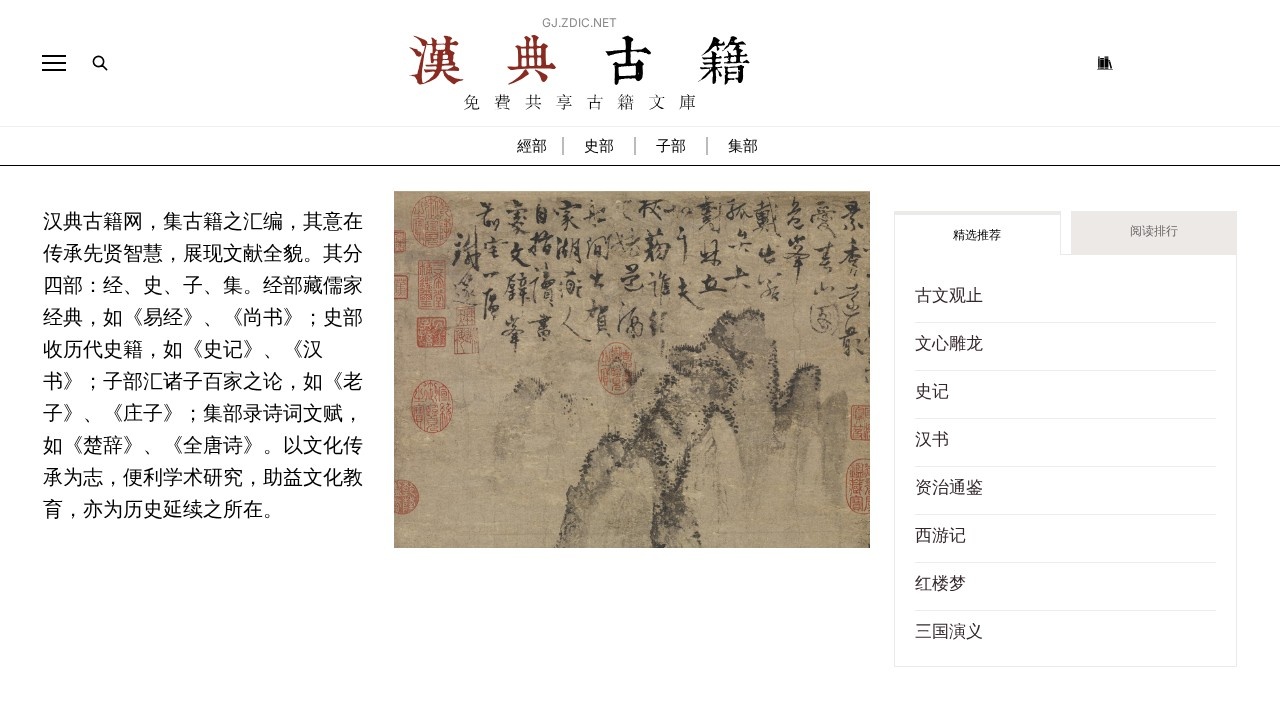 GJ.ZDIC.NET
漢典古籍
免費共享古籍文庫
經部
史部
子部
集部
汉典古籍网，集古籍之汇编，其意在
传承先贤智慧，展现文献全貌。其分
四部：经、史、子、集。经部藏儒家
经典，如《易经》、《尚书》；史部
收历代史籍，如《史记》、《汉
书》；子部汇诸子百家之论，如《老
子》、《庄子》；集部录诗词文赋，
如《楚辞》、《全唐诗》。以文化传
承为志，便利学术研究，助益文化教
育，亦为历史延续之所在。
精选推荐
阅读排行
古文观止
文心雕龙
史记
汉书
资治通鉴
西游记
红楼梦
三国演义